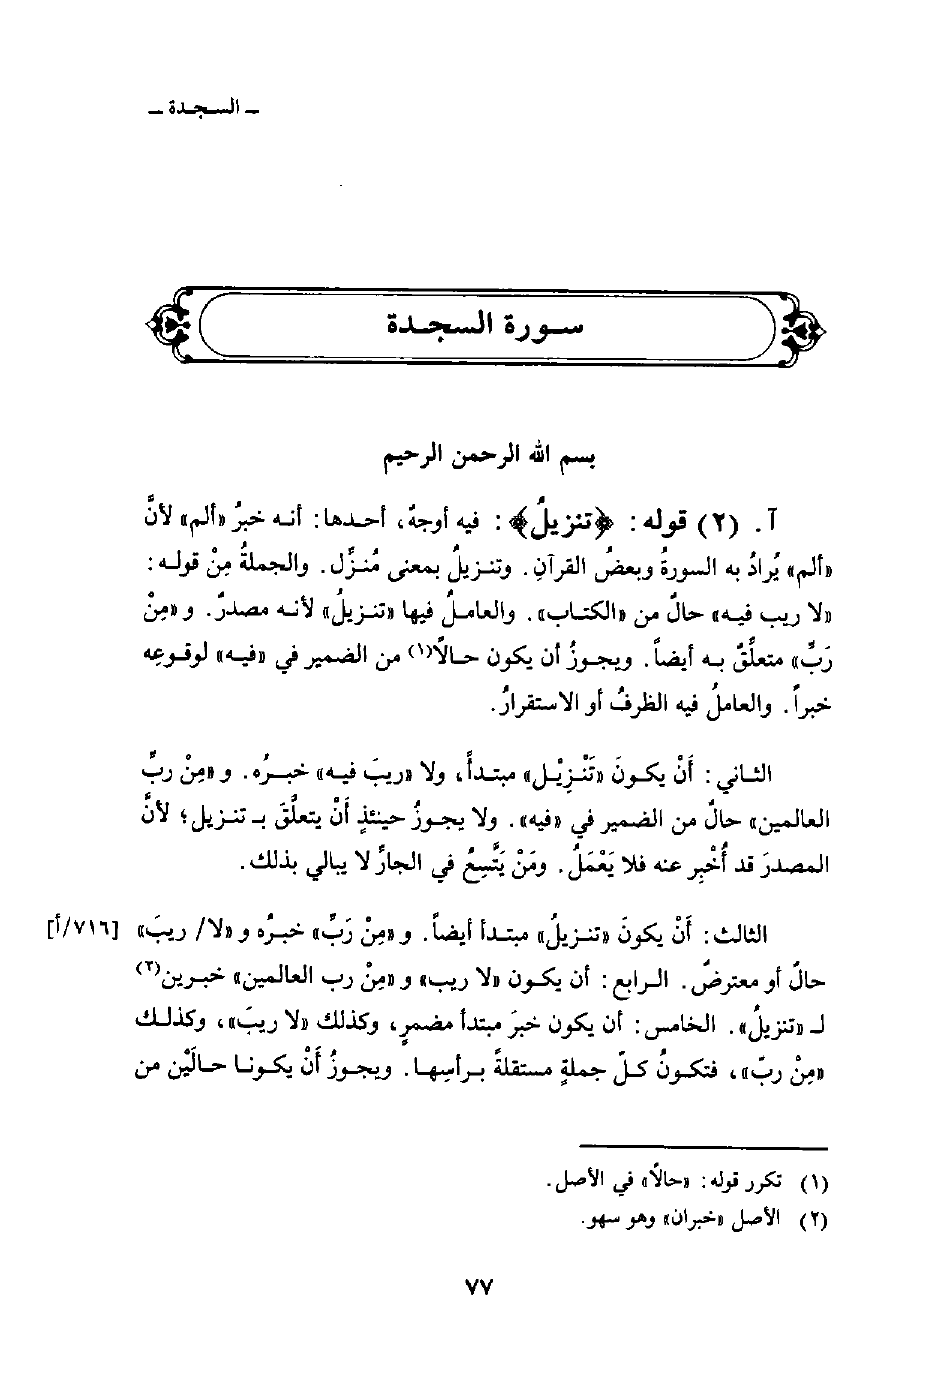 ـ السجدة ـ
سورة السجدة
بسم الله الرحمن الرحيم
آ. (٢) قوله: ﴿تنزيلُ﴾: فيه أوجهٌ، أحدها: أنه خبرُ «ألم» لأنَّ
«ألم» يُرادُ به السورةُ وبعضُ القرآنِ. وتنزيلُ بمعنى مُنَزَّل. والجملةُ مِنْ قوله:
«لا ريب فيه» حالٌ من «الكتاب». والعاملُ فيها «تنزيلُ» لأنه مصدرٌ. و «مِنْ
رَبِّ» متعلِّقٌ به أيضاً. ويجوزُ أن يكون حالاً(١) من الضمير في «فيه» لوقوعِه
خبراً. والعاملُ فيه الظرفُ أو الاستقرارُ.
الثاني: أَنْ يكونَ «تَنْزِيْل» مبتدأً، ولا «ريبَ فيه» خبرُه. و «مِنْ ربِّ
العالمين» حالٌ من الضمير في «فيه». ولا يجوزُ حينئذٍ أَنْ يتعلَّقَ بـ تنزيل؛ لأنَّ
المصدرَ قد أُخْبِر عنه فلا يَعْمَلُ. ومَنْ يَتَّسِعُ في الجارِّ لا يبالي بذلك.
الثالث: أَنْ يكونَ «تنزيلُ» مبتدأ أيضاً. و «مِنْ رَبِّ» خبرُه و «لا/ ريبَ» [٧١٦/أ]
حالٌ أو معترضٌ. الرابع: أن يكون «لا ريب» و «مِنْ رب العالمين» خبرين(٢)
لـ «تنزيلُ». الخامس: أن يكون خبرَ مبتدأ مضمرٍ، وكذلك «لا ريبَ»، وكذلك
«مِنْ ربّ»، فتكونُ كلُّ جملةٍ مستقلةً برأسِها. ويجوزُ أَنْ يكونا حالَيْن من
(١) تكرر قوله: «حالاً» في الأصل.
(٢) الأصل «خبران» وهو سهو.
٧٧